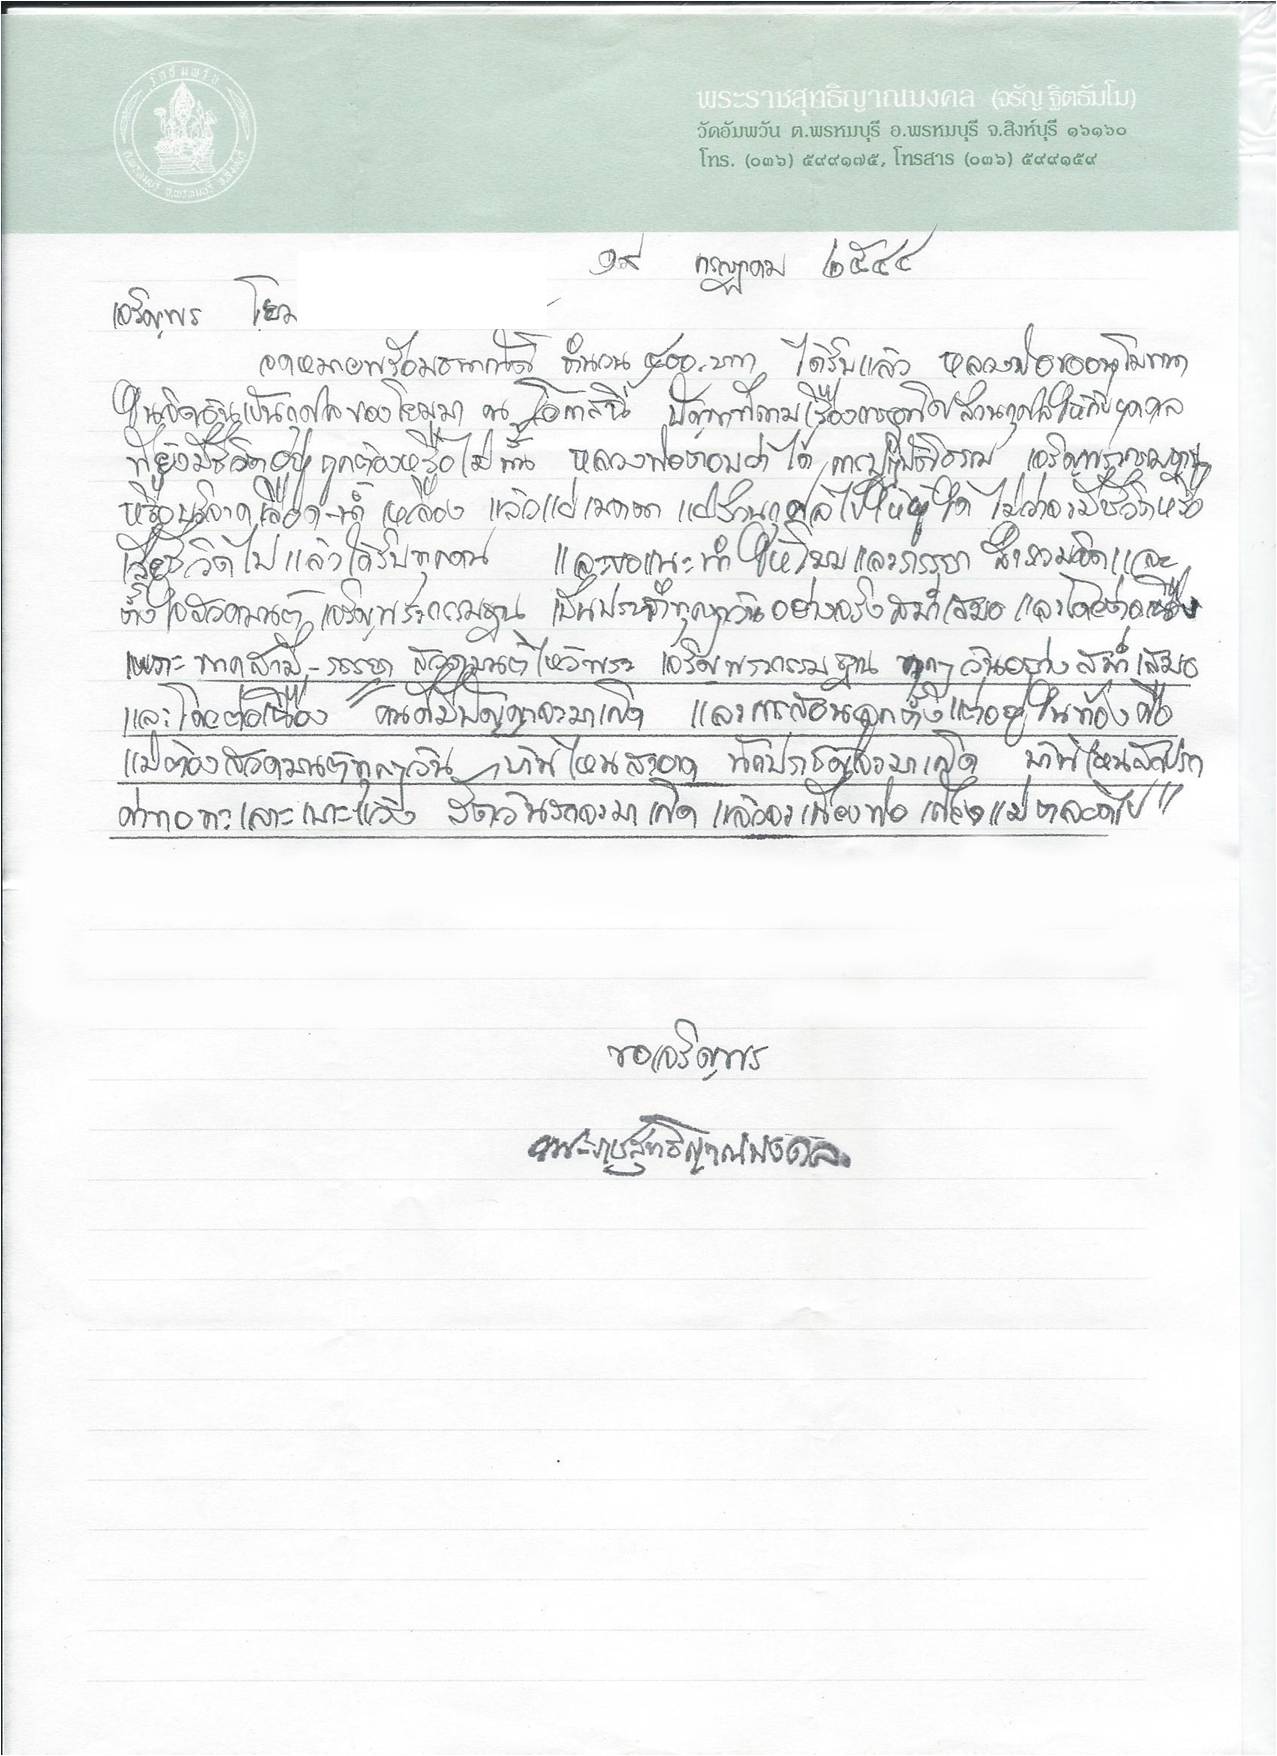 วัดอัมพวัน
ต.พรหมบุรี อ.พรหมบุรี จ.สิงห์บุรี
พระราชสุทธิญาณมงคล (จรัญ ฐิตธัมโม)
วัดอัมพวัน ต.พรหมบุรี อ.พรหมบุรี จ.สิงห์บุรี ๑๖๑๖๐
โทร. (๐๓๖) ๕๙๙๑๗๕, โทรสาร (๐๓๖) ๕๙๙๑๕๙
๑๙ กรกฎาคม ๒๕๔๔
เจริญพร โยม
จดหมายพร้อมธนาณัติ จำนวน ๔๐๐.บาท ได้รับแล้ว หลวงพ่อขออนุโมทนา
ในจิตอันเป็นกุศลของโยมมา ณ โอกาสนี้ ปัญหาที่ถามเรื่องการอุทิศส่วนกุศลให้กับบุคคล
ที่ยังมีชีวิตอยู่ ถูกต้องหรือไม่นั้น หลวงพ่อตอบว่าได้ การปฏิบัติธรรม เจริญพระกรรมฐาน
หรือบริจาคเลือด-น้ำเหลือง แล้วแผ่เมตตา แผ่ส่วนกุศลไปให้ผู้ใด ไม่ว่าจะมีชีวิตหรือ
เสียชีวิตไปแล้วได้รับทุกคน และขอแนะนำให้โยมและภรรยา สำรวมจิตและ
ตั้งใจสวดมนต์ เจริญพระกรรมฐาน เป็นประจำทุกๆวันอย่างจริงสม่ำเสมอ และโดยต่อเนื่อง
เพราะ หากสามี-ภรรยา สวดมนต์ไหว้พระ เจริญพระกรรมฐาน ทุกๆวันอย่างสม่ำเสมอ
และโดยต่อเนื่อง "คนดีมีปัญญาจะมาเกิด และการสอนลูกตั้งแต่อยู่ในท้องคือ
แม่ต้องสวดมนต์ทุกๆวัน บ้านไหนสะอาด นักปราชญ์จะมาเกิด บ้านไหนสกปรก
ด่าทอทะเลาะเบาะแว้ง สัตว์นรกจะมาเกิด แล้วจะเถียงพ่อ เถียงแม่ตลอดไป"
ขอเจริญพร
พระราชสุทธิญาณมงคล